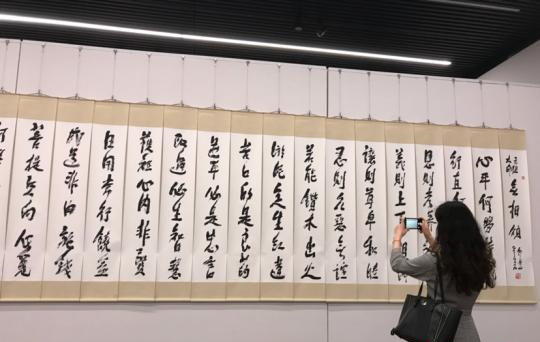 六祖
大師
無相頌
心平何勞
行直
恩則孝
義則上下
讓則尊卑和睦
忍則衆惡無諠
若能鑽木出火
淤泥定生紅蓮
苦口的是良藥
逆耳必是忠言
改過必生智慧
護短心內非賢
日用常行饒益
成道非由施錢
菩提只向心覓